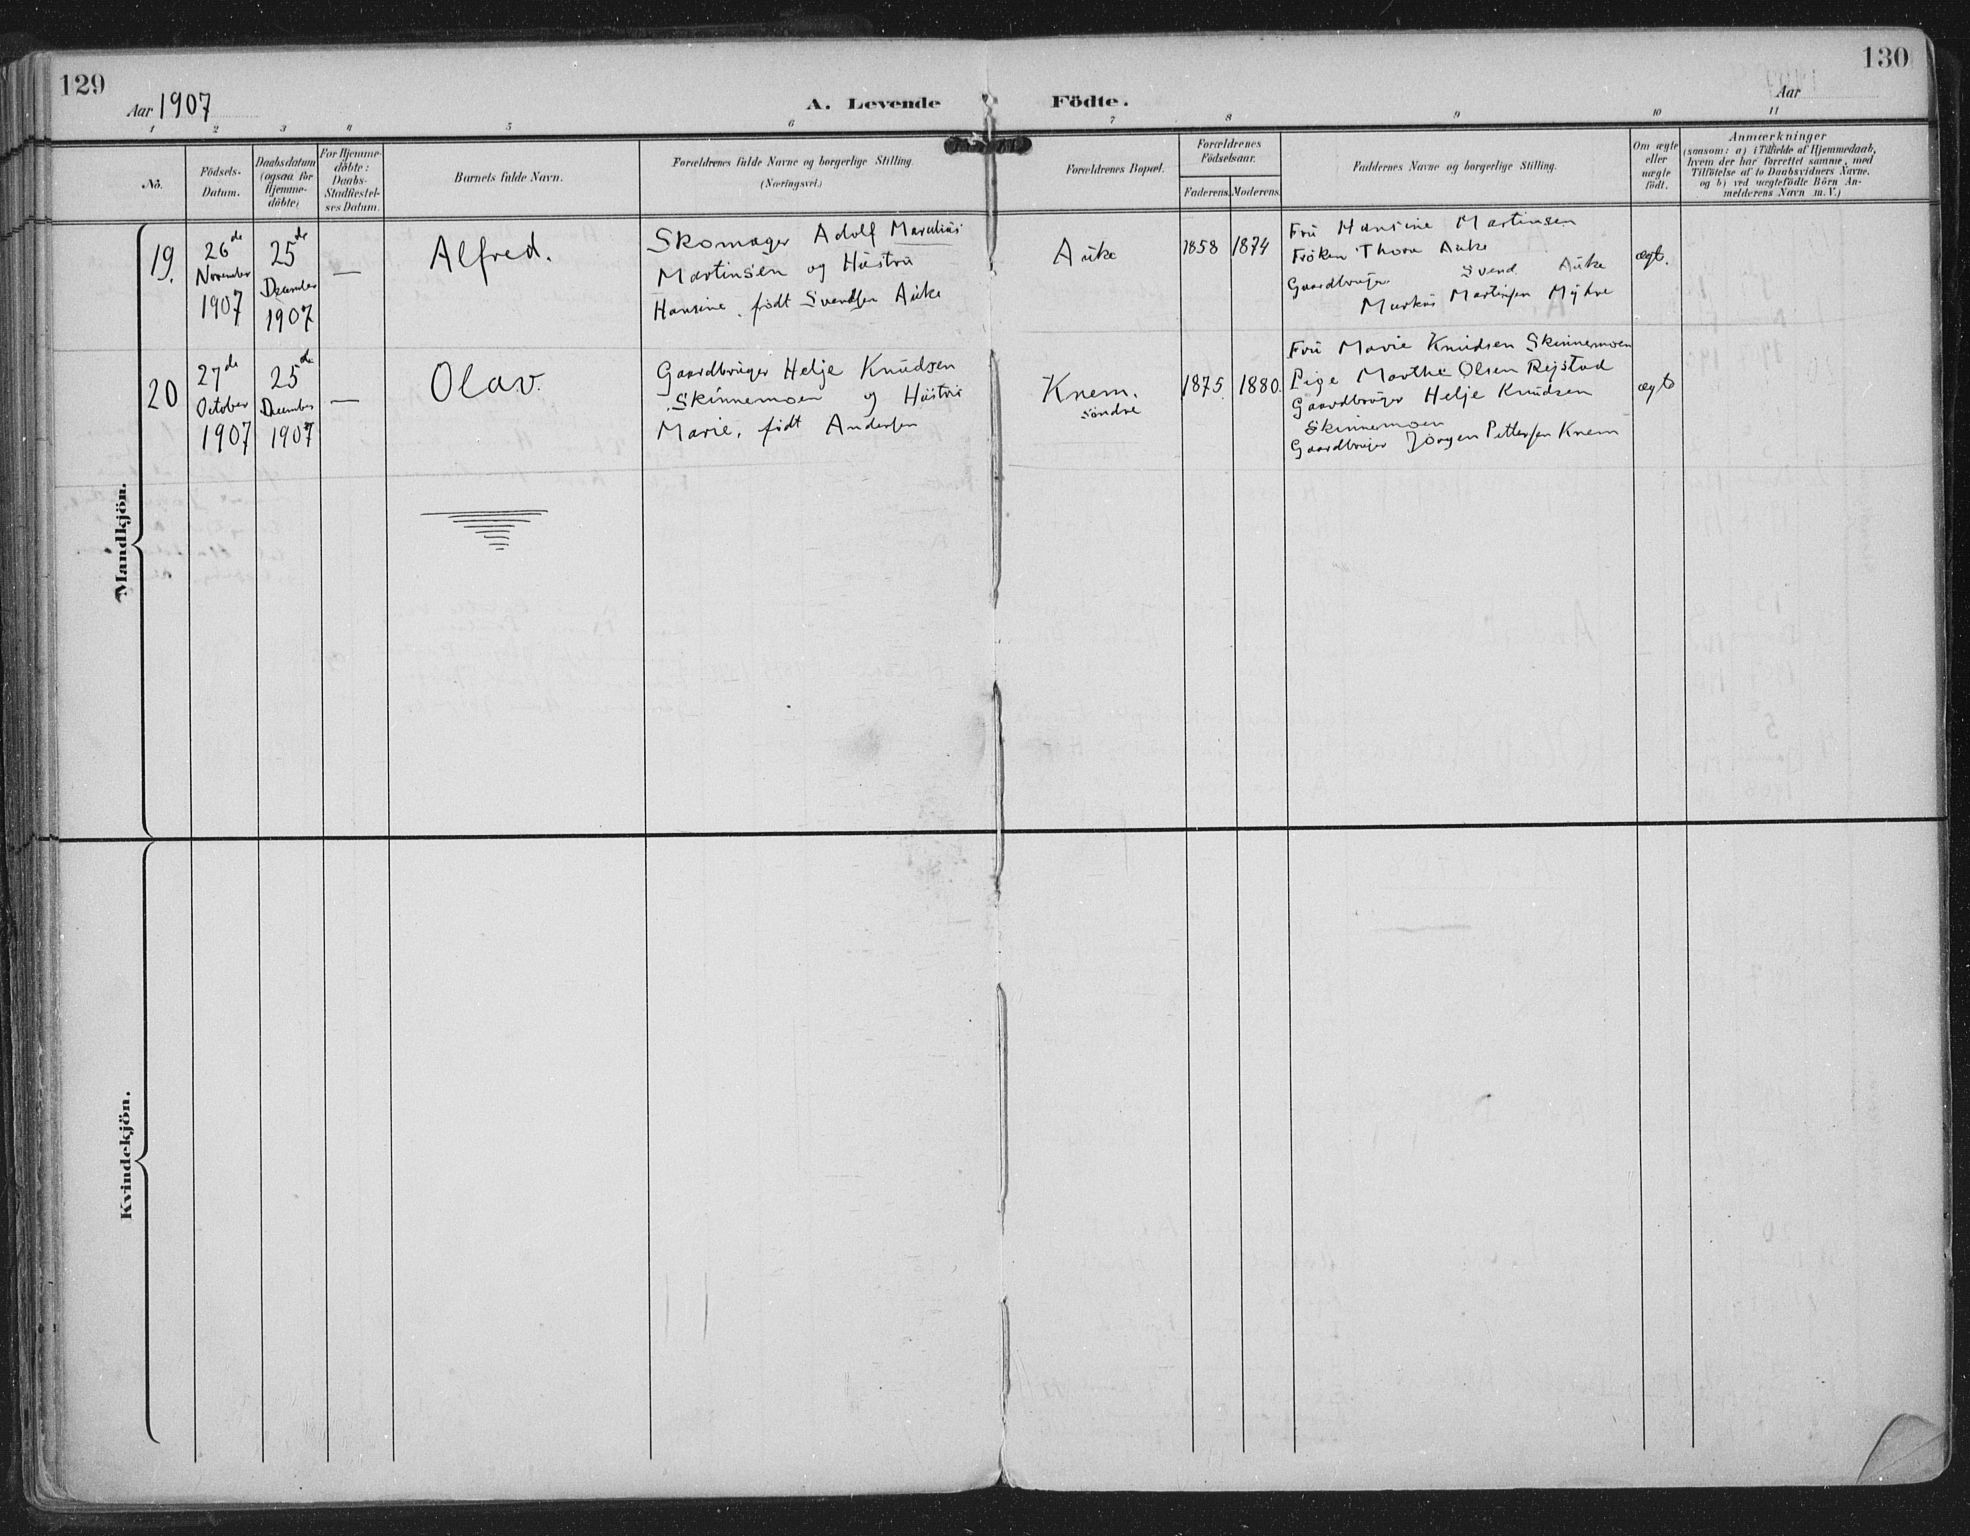 129
Aar 1907
A. Levende Födte.
130
Aar
1 2 3 4 5 6 7 8 9 10 11
No.
Födsels-
Datum.
Daabsdatum
(ogsaa for
Hjemme-
döbte)
For Hjemme-
döbte:
Daabs-
Stadfæstel-
ses Datum.
Barnets fulde Navn.
Forældrenes fulde Navne og borgerlige Stilling.
(Næringsvei.)
Forældrenes Bopæl.
Forældrenes
Födselsaar.
Faderens. Moderens.
Faddernes Navne og borgerlige Stilling.
Om ægte
eller
uægte
födt.
Anmærkninger
(saasom: a) i Tilfælde af Hjemmedaab,
hvem der har forrettet samme, med
Tilföielse af to Daabsvidners Navne.
og b) ved uægtefödte Börn An-
melderens Navn m.V.)
Mandkjön.
19.
26de
November
1907
25de
December
1907
—
Alfred.
Skomager Adolf Marelius
Martinsen og Hustru
Hansine, født Svendsen Auke
Auke
1858
1874
Fru Hansine Martinsen
Frøken Thora Auke
Gaardbruger Svend Auke
Markus Martinsen Myhre
ægte.
20
27de
October
1907
25de
December
1907
—
Olav.
Gaardbruger Helje Knudsen
Skinnemoen og Hustru
Marie, født Andersen
Knem.
søndre
1875
1880.
Fru Marie Knudsen Skinnemoen
Pige Marthe Olsen Rejstad
Gaardbruger Helje Knudsen
Skinnemoen
Gaardbruger Jørgen Pettersen Knem
ægte
Kvindekjön.